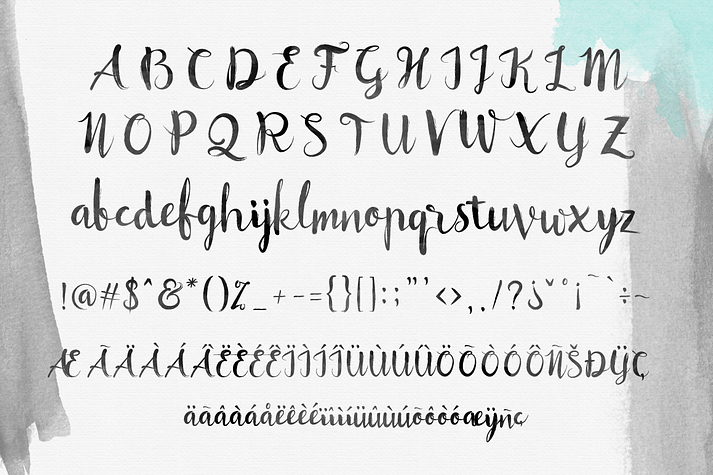 A B C D E F G H I J K L M
N O P Q R S T U V W X Y Z
abcdefghijklmnopqrstuvwxyz
!@#$^&*()%_+-={}[]:;"'<>,./?¿ˇ°¡¯`÷~
Æ Ã Ä À Á Â Ë È É Ê Ï Ì Í Î Ü Ù Ú Û Ö Õ Ò Ó Ô Ñ Š Ð Ÿ Ç
äãâàáåëêèéïìíüûùúõôòóæÿñç